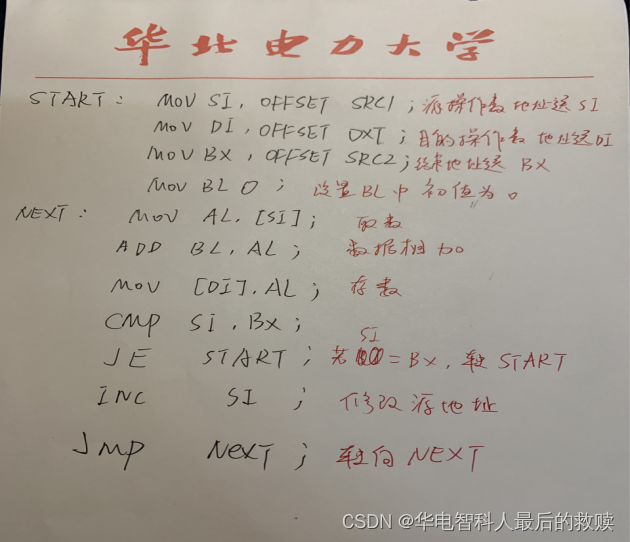 华北电力大学
START: MOV SI, OFFSET SRC1; 源操作数地址送SI
MOV DI, OFFSET DXT; 目的操作数地址送DI
MOV BX, OFFSET SRC2; 结束地址送 BX
MOV BL 0; 设置BL中初值为0
NEXT: MOV AL, [SI]; 取数
ADD BL, AL; 数据相加
MOV [DI], AL; 存数
CMP SI, BX;
JE START; 若SI=BX, 转START
INC SI; 修改源地址
JMP NEXT; 转向 NEXT
CSDN @华电智科人最后的救赎